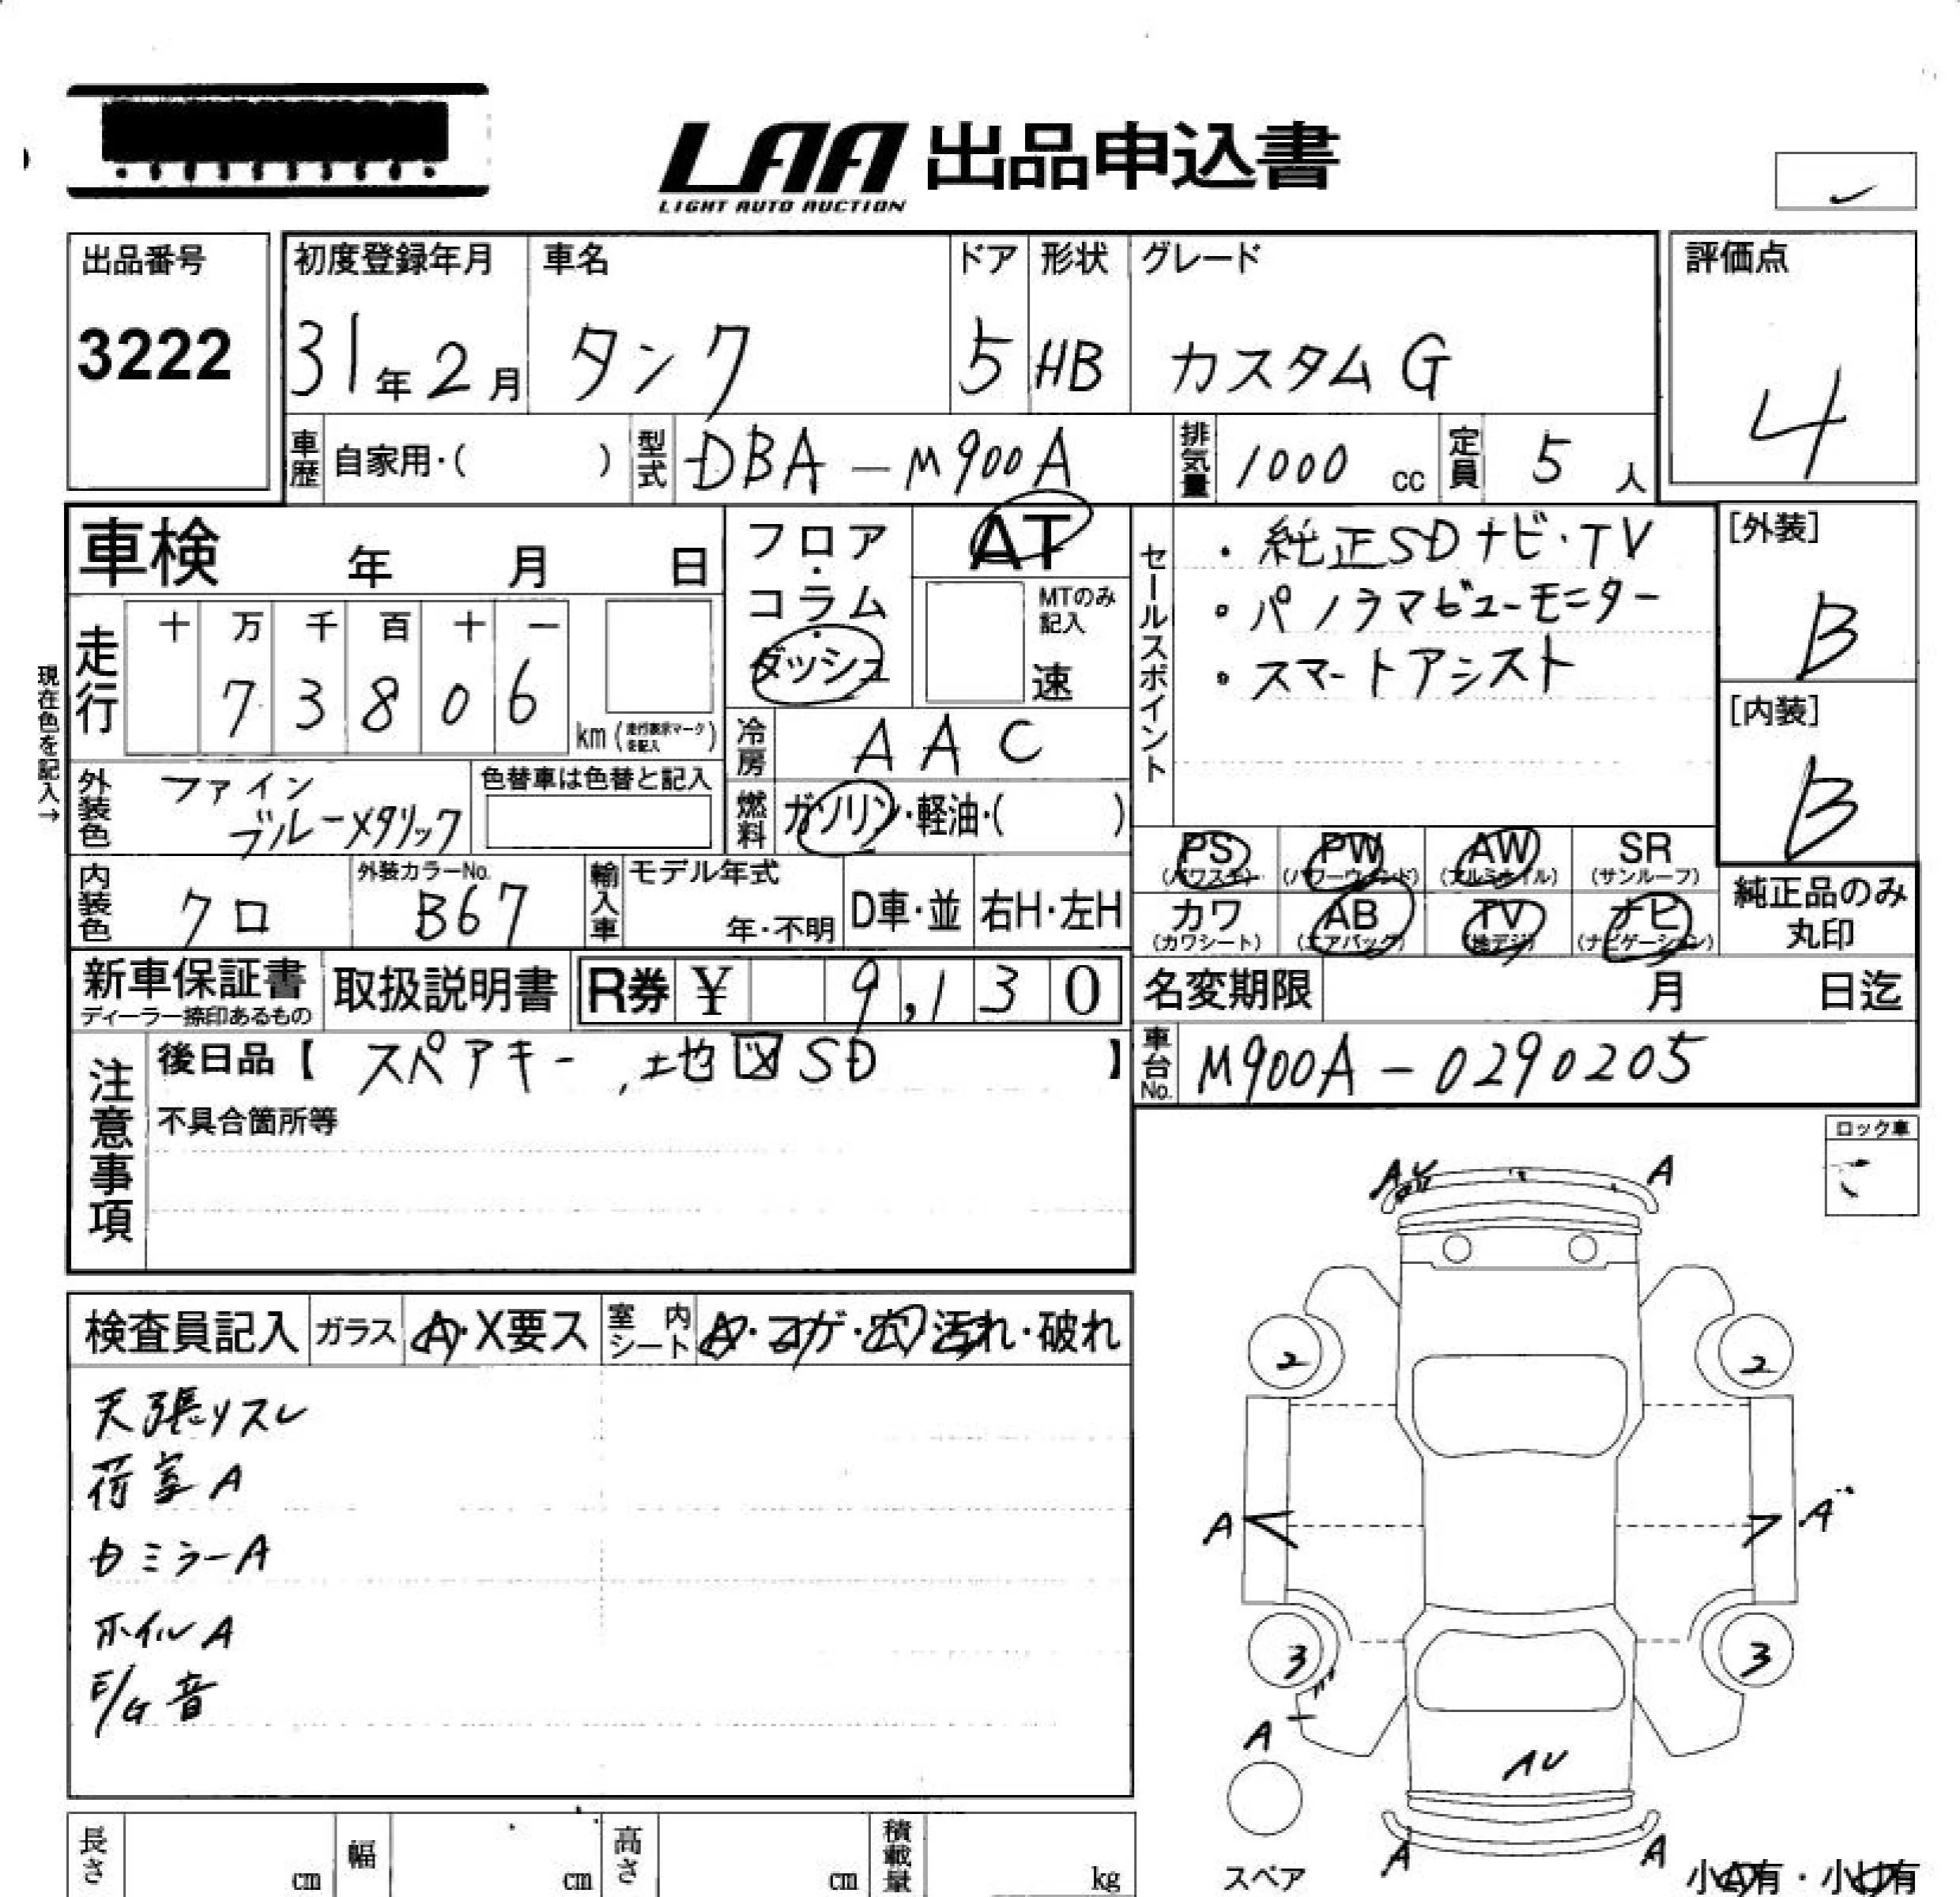 LAA 出品申込書
LIGHT AUTO AUCTION
出品番号
3222
初度登録年月
31年2月
車名
タンク
ドア
5
形状
HB
グレード
カスタムG
評価点
4
車歴 自家用・( )
型式 DBA-M900A
排気量 1000 cc
定員 5 人
車検 年 月 日
フロア・コラム・ダッシュ
AT
MTのみ記入
速
セールスポイント
・純正SDナビ・TV
・パノラマビューモニター
・スマートアシスト
[外装]
B
[内装]
B
現在色を記入→
走行
十 万 千 百 十 一
7 3 8 0 6
km (走行表示マークを記入)
冷房 AAC
外装色 ファインブルーメタリック
色替車は色替と記入
燃料 ガソリン・軽油・( )
PS (パワステ)
PW (パワーウィンド)
AW (アルミホイル)
SR (サンルーフ)
カワ (カワシート)
AB (エアバッグ)
TV (地デジ)
ナビ (ナビゲーション)
純正品のみ丸印
内装色 クロ
外装カラーNo. B67
輸入車 モデル年式 年・不明
D車・並 右H・左H
新車保証書
ディーラー捺印あるもの
取扱説明書
R券 ¥ 9,130
名変期限 月 日迄
車台No. M900A-0290205
注意事項
後日品【 スペアキー,地図SD 】
不具合箇所等
ロック車
検査員記入 ガラス A・X要ス 室内シート A・コゲ・穴・汚れ・破れ
天張リスレ
荷室A
カミラーA
ホイルA
E/G音
A
A
2
2
A
A
3
3
A
AU
A
A
スペア
小A有・小U有
長さ cm
幅 cm
高さ cm
積載量 kg